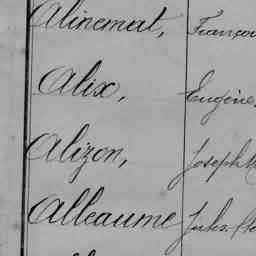 Alinemat, François
Alix, Eugène
Alizon, Joseph
Alleaume Jules